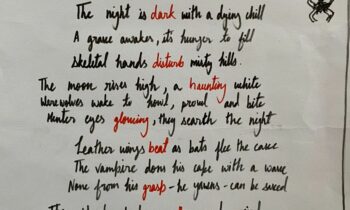 The night is dark with a dying chill
A grave awakes, its hunger to fill
Skeletal hands disturb misty hills.
The moon rises high, a haunting white
Werewolves wake to howl, prowl and bite
Hunter eyes glowing, they search the night
Leather wings beat as bats flee the cave
The vampire dons his cape with a wave
None from his grasp - he yearns - can be saved